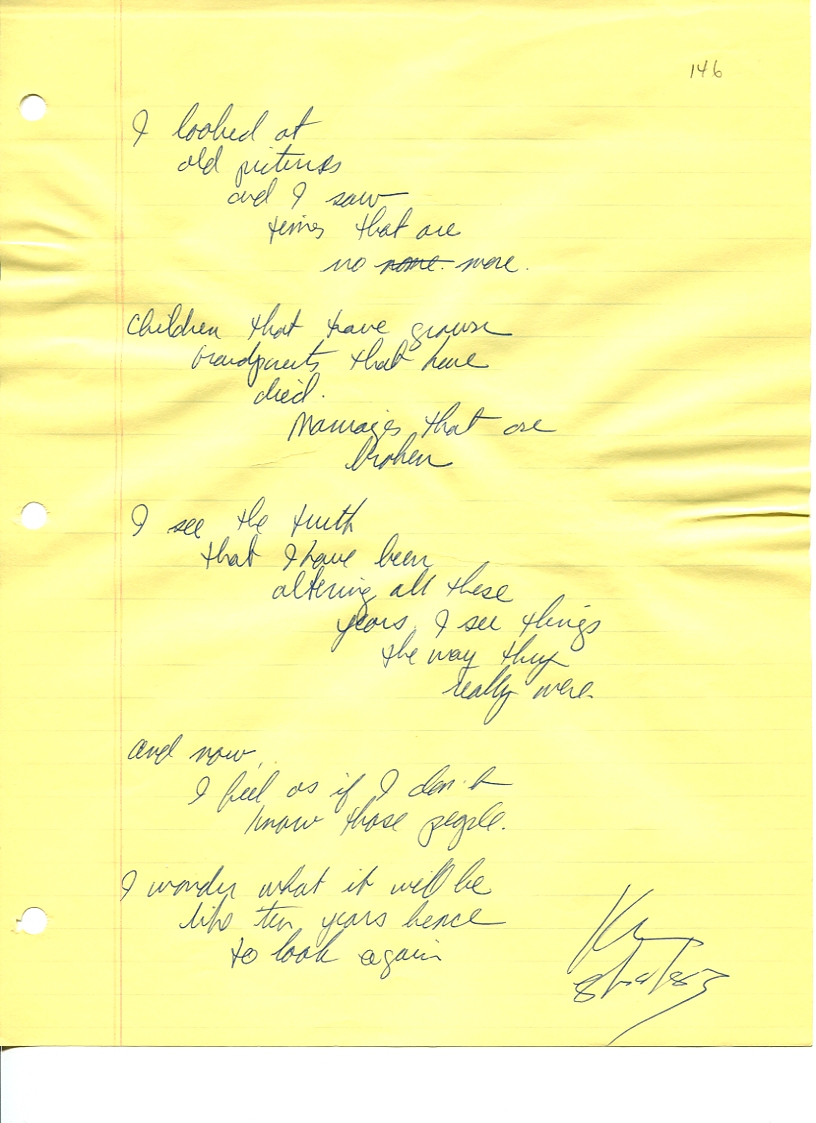 146
I looked at
old pictures
and I saw
times that are
no none. more.
Children that have grown
Grandparents that have
died.
Marriages that are
broken
I see the truth
that I have been
altering all these
years, I see things
the way they
really were.
and now..
I feel as if I don't
know those people.
I wonder what it will be
like ten years hence
to look again